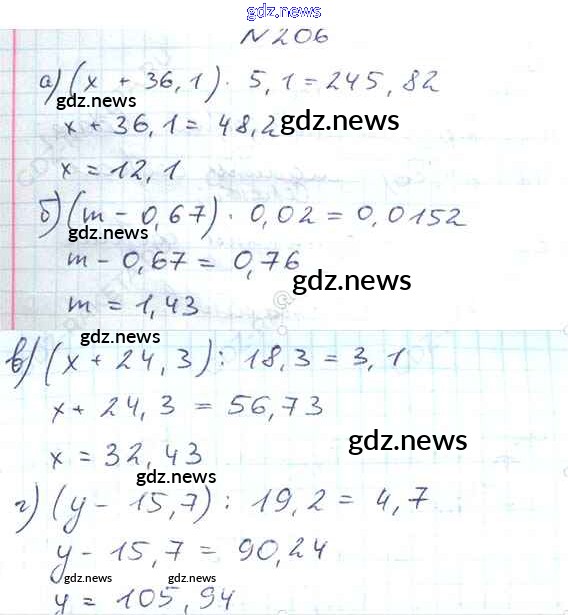 gdz.news
N 206
а) (x + 36,1) · 5,1 = 245,82
gdz.news
x + 36,1 = 48,2
gdz.news
x = 12,1
б) (m - 0,67) · 0,02 = 0,0152
gdz.news
m - 0,67 = 0,76
gdz.news
m = 1,43
gdz.news
в) (x + 24,3) : 18,3 = 3,1
x + 24,3 = 56,73
gdz.news
x = 32,43
gdz.news
г) (y - 15,7) : 19,2 = 4,7
y - 15,7 = 90,24
gdz.news gdz.news
y = 105,94